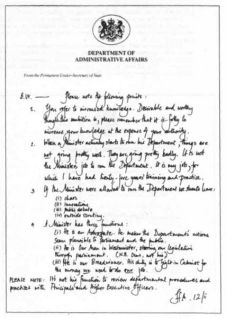 DEPARTMENT OF
ADMINISTRATIVE AFFAIRS
From the Permanent Under-Secretary of State
B.W. — Please note the following points:
1. You refer to increased knowledge. Desirable and worthy
though this ambition is, please remember that it is folly to
increase your knowledge at the expense of your authority.
2. When a Minister actually starts to run his Department, things are
not going pretty well. They are going pretty badly. It is not
the Minister's job to run the Department. It is my job, for
which I have had twenty-five years' training and practice.
3. If the Minister were allowed to run the Department we should have:
(i) chaos
(ii) innovations
(iii) public debate
(iv) outside scrutiny.
4. A Minister has three functions:
(i) He is an Advocate. He makes the Department's actions
seem plausible to Parliament and the public.
(ii) He is Our Man in Westminster, steering our legislation
through parliament. (N.B. Ours, not his)
(iii) He is our Breadwinner. His duty is to fight in Cabinet for
the money we need to do our job.
PLEASE NOTE: It is not his function to review departmental procedures and
practices with Principals and Higher Executive Officers.